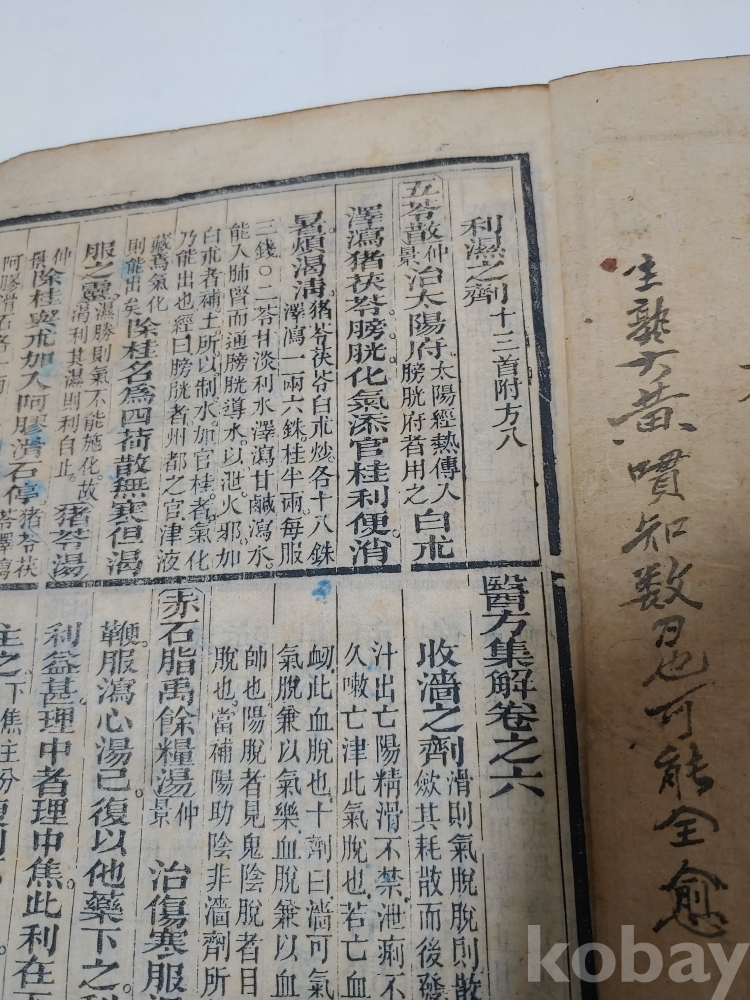 生熟大黄
慣知数日也可能全愈
利濕之劑十三首附方八
五苓散仲景治太陽府太陽經熱傳入膀胱府者用之白朮
澤瀉猪茯苓膀胱化氣添官桂利便消
暑煩渴清猪苓茯苓白朮炒各十八銖澤瀉一兩六銖桂半兩每服
三錢〇二苓甘淡利水澤瀉甘鹹瀉水
能入肺腎而通膀胱導水以泄火邪加
白朮者補土所以制水加官桂者氣化
乃能出也經曰膀胱者州都之官津液
藏焉氣化則能出矣除桂名為四苓散無寒但渴
服之靈濕勝則氣不能施化故渴利其濕則利自止猪苓湯
仲景除桂與朮加入阿膠滑石停猪苓茯苓澤瀉
阿膠滑石各一兩
醫方集解卷之六
收濇之劑滑則氣脫脫則散歛其耗散而後發
汁出亡陽精滑不禁泄痢不
久嗽亡津此氣脫也若亡血
衂此血脫也十劑曰濇可氣
氣脫兼以氣藥血脫兼以血
帥也陽脫者見鬼陰脫者目
脫也當補陽助陰非濇劑所
赤石脂禹餘糧湯仲景治傷寒服湯
鞕服瀉心湯已復以他藥下之利
利益甚理中者理中焦此利在下
主之下焦主分
kobay